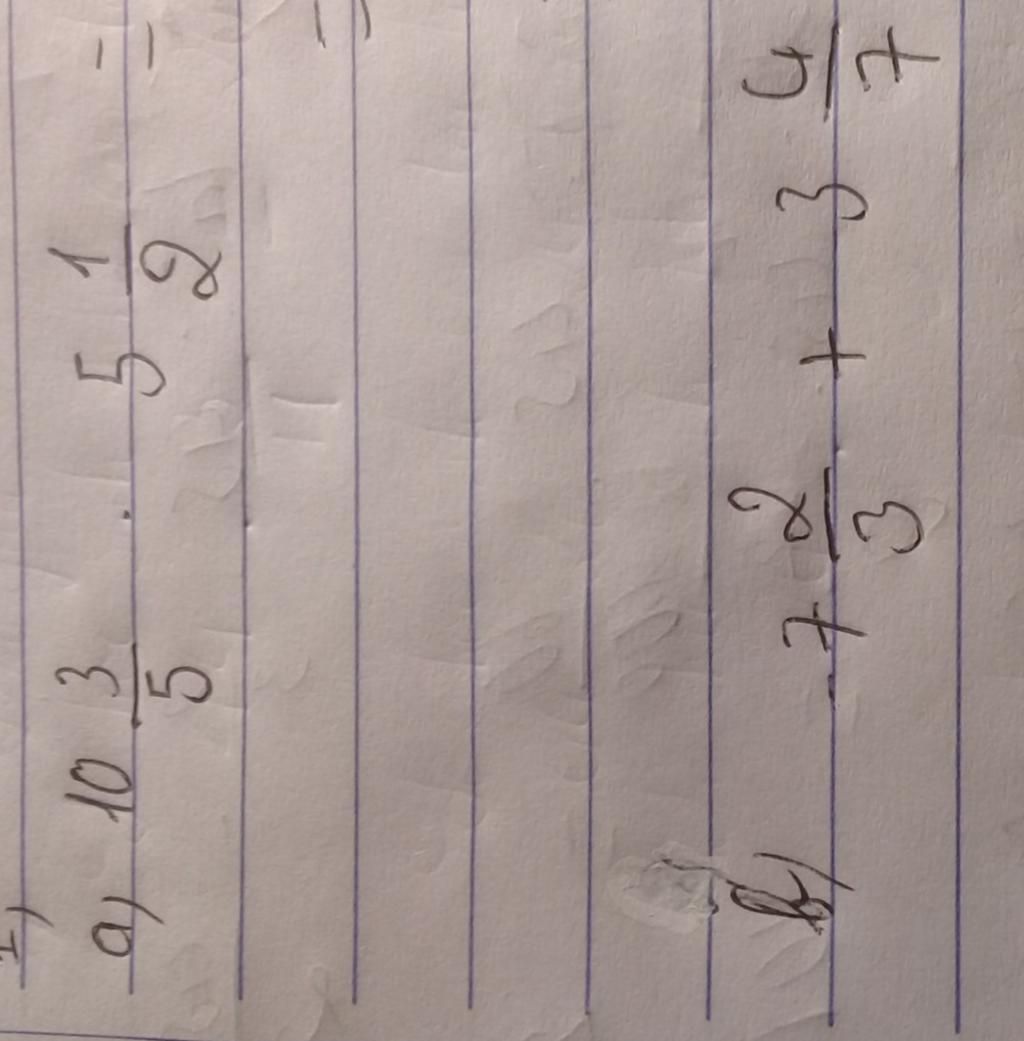 1)
a) 10 3/5 · 5 1/2 =
=
b) 7 2/3 + 3 4/7